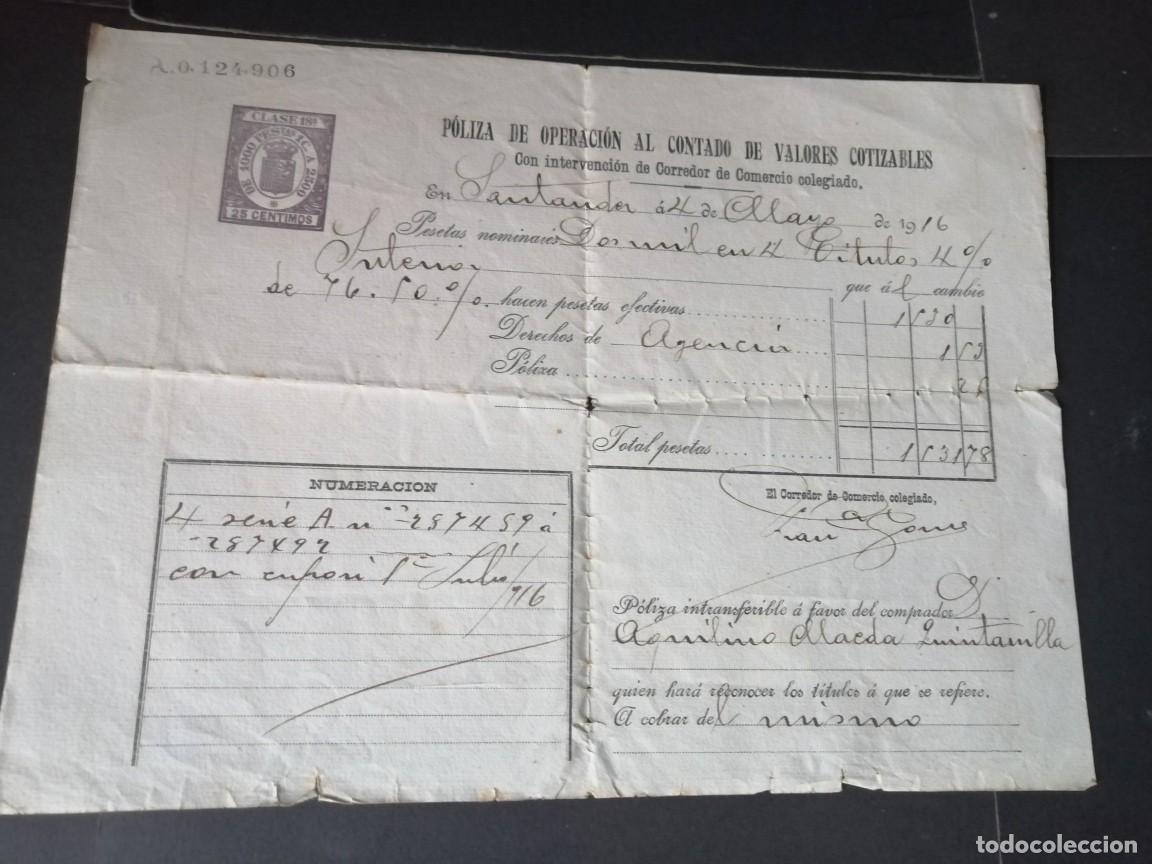 A.0.124.906
CLASE 18ª
DE 1000 PESTAS 1 C. A 2500
25 CENTIMOS
PÓLIZA DE OPERACIÓN AL CONTADO DE VALORES COTIZABLES
Con intervención de Corredor de Comercio colegiado.
En Santander á 4 de Mayo de 1916
Pesetas nominales Dos mil en 4 Titulos 4 %
Interior que á l cambio
de 76.50 % hacen pesetas efectivas 1530
Derechos de Agencia 1 53
Póliza 25
Total pesetas 1531 78
NUMERACION
4 serie A nº 287489 á
287492
con cupon 1º Julio
/916
El Corredor de Comercio colegiado,
Póliza intransferible á favor del comprador D.
Aquilino Maeda Quintanilla
quien hará reconocer los títulos á que se refiere.
A cobrar del mismo
todocoleccion